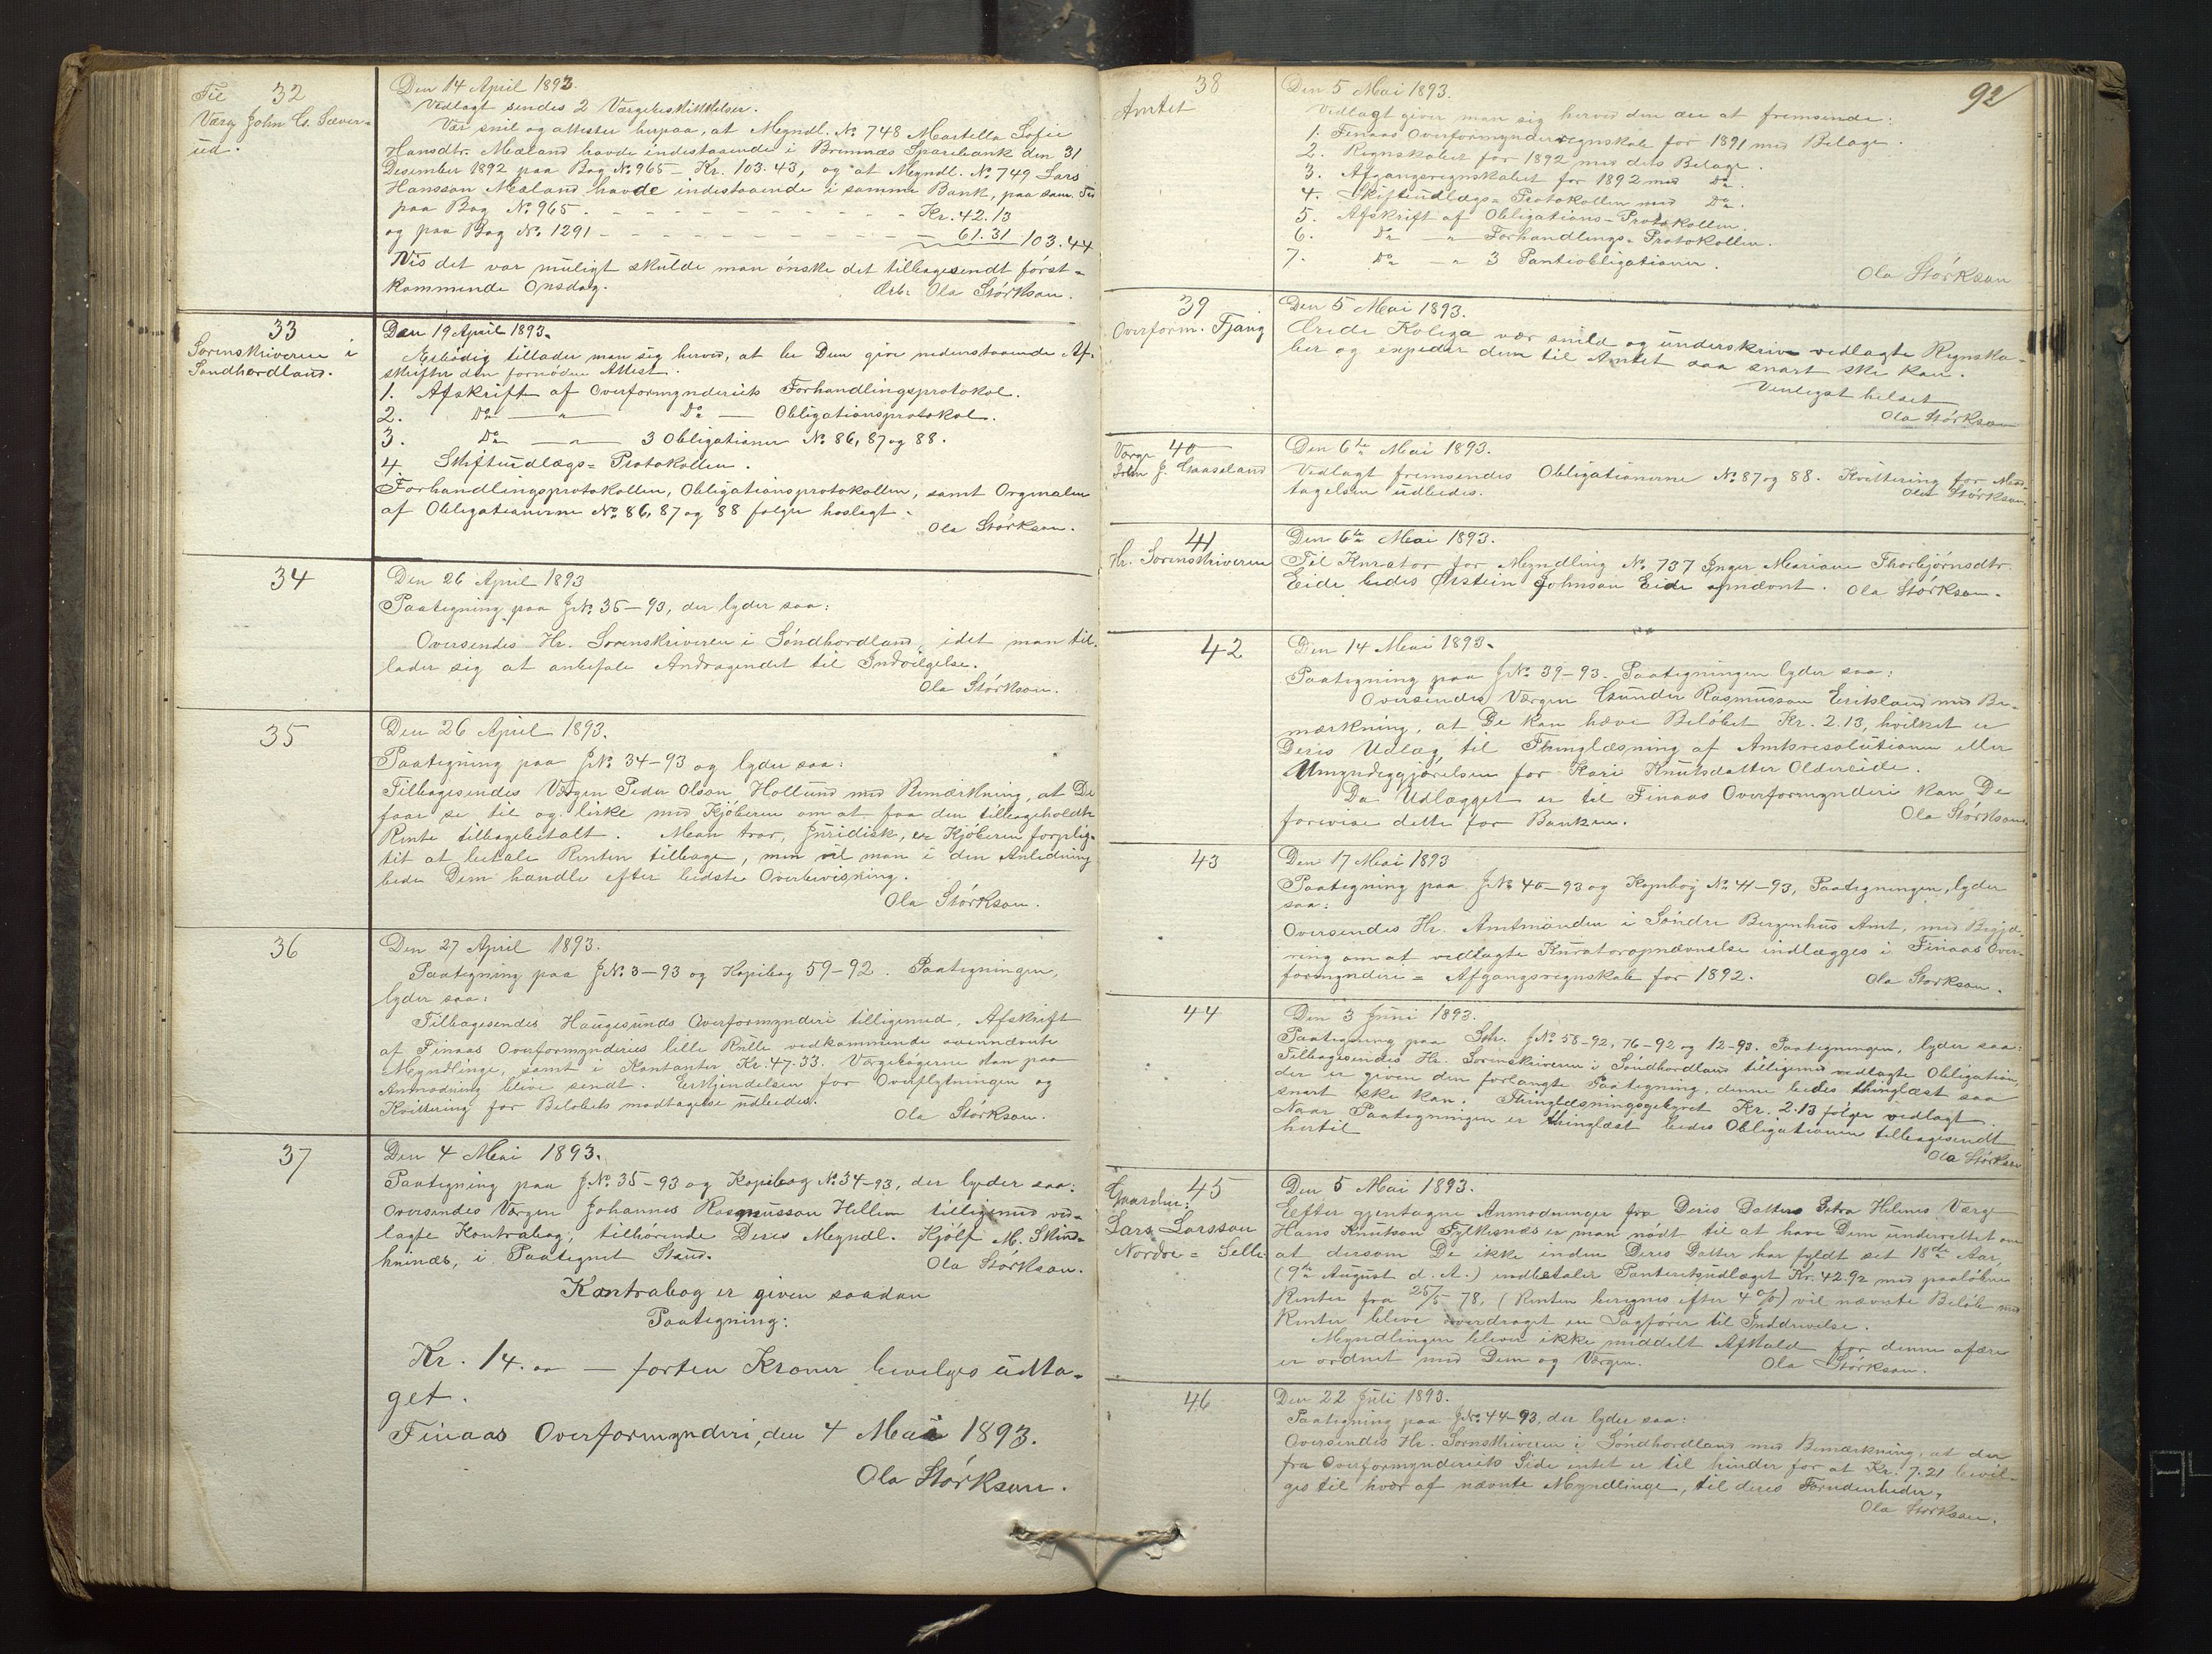 32
Til
Værg John Cs. Sæver=
ud.
Den 14 April 1893.
Vedlagt sendes 2 Værgebeskikkelser.
Vær snil og attester herpaa, at Myndl. No 748 Martella Sofie
Hansdtr. Mæland havde indestaaende i Bremnæs Sparebank den 31
Desember 1892 paa Bog No 965 - Kr. 103.43, og at Myndl. No 749 Lars
Hansson Mæland havde indestaaende i samme Bank, paa sam. Tid
paa Bog No 965. - - - - - - - - - Kr. 42.13
og paa Bog No. 1291 - - - - - - - - - 61.31 103.44
Vis det var muligt skulde man ønske det tilbagesendt først=
kommende Onsdag. Ærb. Ola Størkson.
33
Sorenskriveren i
Søndhordland.
Den 19 April 1893.
Ærbødig tillader man sig herved, at be Dem give nedenstaaende Af=
skrifter den fornødne Attest.
1. Afskrift af Overformynderiets Forhandlingsprotokol.
2. Do — " — Do — Obligationsprotokol.
3. Do — " — 3 Obligationer No. 86, 87 og 88.
4. Skifteudlægs= Protokollen.
Forhandlingsprotokollen, Obligationsprotokollen, samt Orginalen
af Obligationerne No. 86, 87 og 88 følger hoslagt.
Ola Størkson.
34
Den 26 April 1893
Paategning paa J.No. 35-93, der lyder saa:
Oversendes Hr. Sorenskriveren i Søndhordland, idet man til=
lader sig at anbefale Andragendet til Indvilgelse.
Ola Størkson.
35
Den 26 April 1893.
Paategning paa J.No. 34-93 og lyder saa:
Tilbagesendes Værgen Peder Olson Hollund med Bemærkning, at De
faar se til og lirke med Kjøberen om at faa den tilbageholdte
Rente tilbagebetalt. Man tror, Juridisk, er Kjøberen forplig=
tet at betale Renten tilbage, men vil man i den Anledning
bede Dem handle efter bedste Overbevisning.
Ola Størkson.
36
Den 27 April 1893.
Paategning paa J.No. 3-93 og Kopibog 59-92. Paategningen,
lyder saa:
Tilbagesendes Haugesunds Overformynderi tilligemed, Afskrift
af Finaas Overformynderies lille Rulle vedkommende ovennævnte
Myndlinge, samt i Kontanter Kr. 47.33. Værgebøgerne kan paa
Anmodning blive sendt. Erkjendelsen for Overflytningen og
Kvittering for Beløbets modtagelse udbedes.
Ola Størkson.
37
Den 4 Mai 1893.
Paategning paa J.No. 35-93 og Kopibog No. 34-93, der lyder saa:
Oversendes Værgen Johannes Rasmusson Hellen tilligemed ved=
lagte Kontrabog, tilhørende Deres Myndl. Kjølf M.
i Paategnet Stand. Ola Størkson.
Kontrabog er given saadan
Paategning:
Kr. 14.00 — fjorten Kroner bevilges udta=
get.
Finaas Overformynderi, den 4 Mai 1893.
Ola Størkson.
92
38
Amtet
Den 5 Mai 1893.
Vedlagt giver man sig herved den ære at fremsende:
1. Finaas Overformynderregnskab for 1891 med Bilage.
2. Regnskabet for 1892 med dets Bilage.
3. Afgangsregnskabet for 1892 med Do.
4. Skifteudlægs= Protokollen med Do.
5. Afskrift af Obligations=Protokollen.
6. Do — " Forhandlings=Protokollen.
7. Do — " 3 Panteobligationer.
Ola Størkson
39
Overform. Fjøng
Den 5 Mai 1893.
Ærede Kolega vær snild og underskriv vedlagte Regnska=
ber og expeder dem til Amtet saa snart ske kan.
Venligst helset
Ola Størkson
40
Værge
John J. Gaaseland
Den 6te Mai 1893.
Vedlagt fremsendes Obligationerne No. 87 og 88. Kvittering for Mod=
tagelsen udbedes. Ola Størkson.
41
Hr. Sorenskriveren
Den 6te Mai 1893.
Til Kurator for Myndling No. 737 Inger Mariane Thorbjørnsdtr.
Eide bedes Øistein Johnson Eide opnævnt. Ola Størkson.
42
Den 14 Mai 1893.
Paategning paa J.No. 39-93. Paategningen lyder saa:
Oversendes Værgen Gunder Rasmusson Eriksland med Be=
mærkning, at De kan hæve Beløbet Kr. 2.13, hvilket er
Deres Udlæg til Thinglæsning af Amtsresolutionen eller
Umyndiggjørelsen for Kari Knutsdatter Oldereide.
Da Udlægget er til Finaas Overformynderi kan De
forevise dette for Banken. Ola Størkson.
43
Den 17 Mai 1893
Paategning paa J.No. 40-93 og Kopibog No. 41-93, Paategningen, lyder
saa:
Oversendes Hr. Amtmanden i Søndre Bergenhus Amt, med Begjæ=
ring om at vedlagte Kuratoropnævnelse indlægges i Finaas Over=
formynderi = Afgangsregnskab for 1892. Ola Størkson.
44
Den 3 Juni 1893.
Paategning paa J.No. 58-92, 76-92 og 12-93. Paategningen, lyder saa:
Tilbagesendes Hr. Sorenskriveren i Søndhordland tilligemed vedlagte Obligation,
der er given den forlangte Paategning, denne bedes thinglæst saa
snart ske kan. Thinglæsningsgebyret Kr. 2.13 følger vedlagt.
Naar Paategningen er thinglæst bedes Obligationen tilbagesendt
hertil
Ola Størkson
45
Gaardm.
Lars Larsson
Nordre = Selle
Den 5 Mai 1893.
Efter gjentagne Anmodninger fra Deres Datters Petra Helenes Værge
Hans Knutson Fylkesnæs er man nødt til at have Dem underrettet om
at dersom De ikke inden Deres Datter har fyldt sit 18de Aar,
(9de August d. A.) indbetaler Panteretsudlæget Kr. 42.92 med paaløbne
Renter fra 25/5 78, (Renten beregnes efter 4 %) vil nævnte Beløb med
Renter blive overdraget en Sagfører til Inddrivelse.
Myndlingen bliver ikke meddelt Afkald før denne afære
er ordnet med Dem og Værgen. Ola Størkson.
46
Den 22 Juli 1893.
Paategning paa J.No. 44-93, der lyder saa:
Oversendes Hr. Sorenskriveren i Søndhordland med Bemærkning, at der
fra Overformynderiets Side intet er til hinder for at Kr. 7.21 bevil=
ges til hver af nævnte Myndlinge, til deres Fornødenheder.
Ola Størkson.